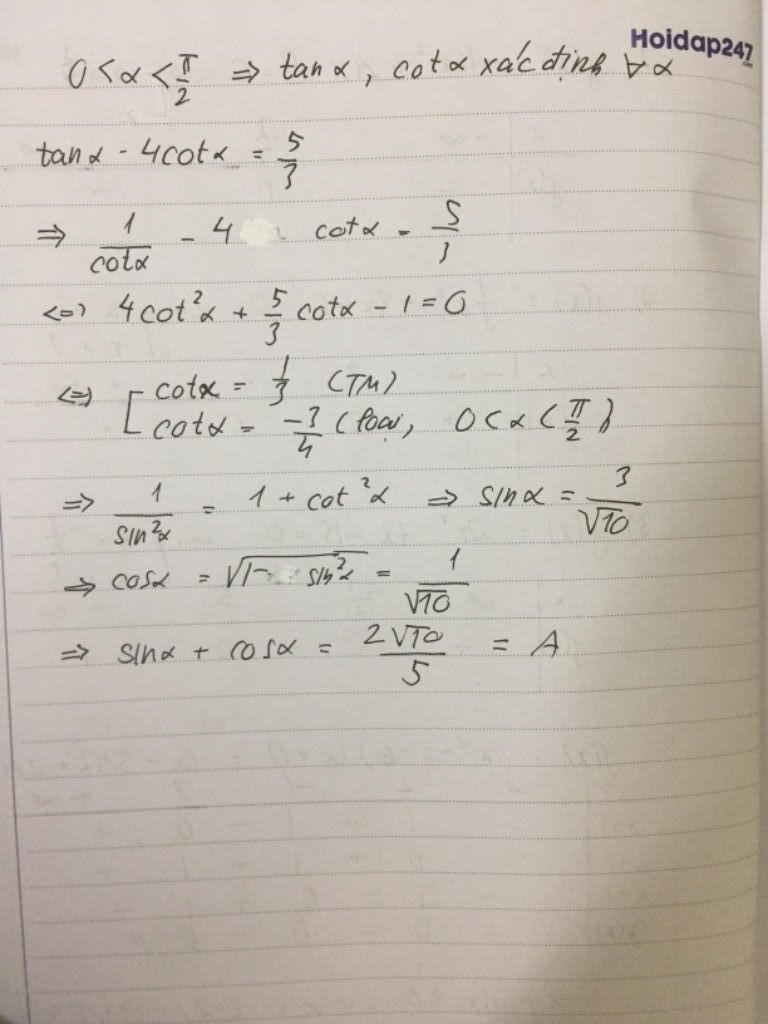 Hoidap247
.com
0 < α < π/2 ⇒ tanα, cotα xác định ∀ α
tanα - 4cotα = 5/3
⇒ 1/cotα - 4 cotα - 5/3
⇔ 4cot²α + 5/3 cotα - 1 = 0
⇔ [ cotα = 1/3 (TM)
cotα = -3/4 (loại, 0 < α < π/2)
⇒ 1/sin²α = 1 + cot²α ⇒ sinα = 3/√10
⇒ cosα = √(1 - sin²α) = 1/√10
⇒ sinα + cosα = 2√10/5 = A